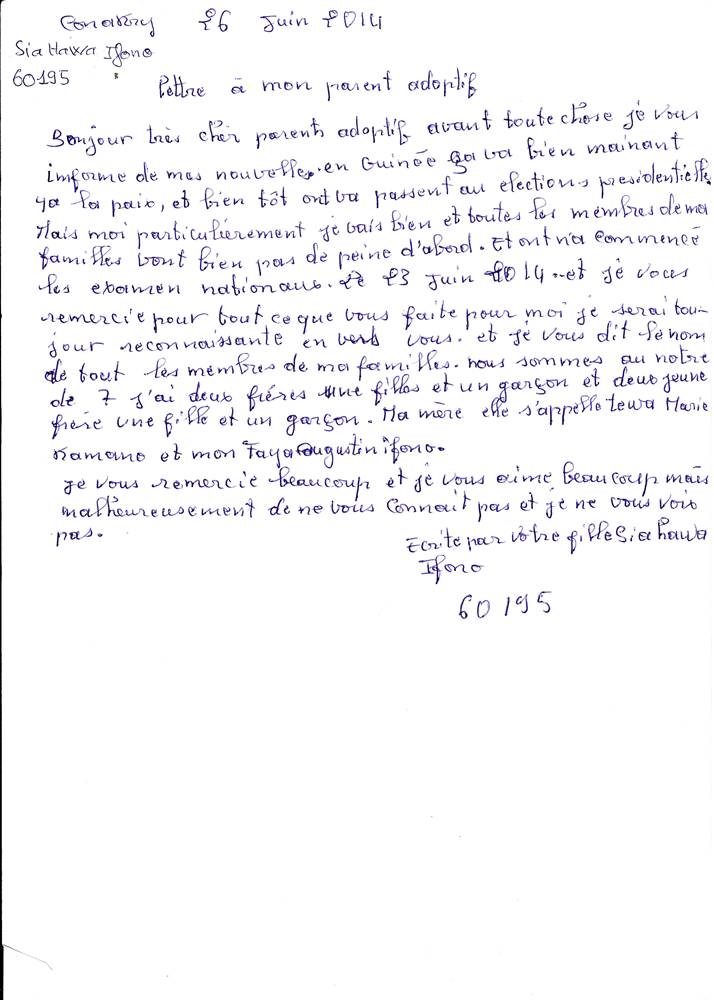 Conakry 26 Juin 2014
Sia Hawa Ifono
60195
Lettre à mon parent adoptif
Bonjour très cher parents adoptif avant toute chose je vous
informe de mes nouvelles. en Guinée ça va bien mainant
ya la paix, et bien tôt ont va passent au elections presidentielle.
Mais moi particulièrement je vais bien et toutes les membres de ma
familles vont bien pas de peine d'abord. Et ont n'a commencé
les examen nationaux. Le 23 Juin 2014. et je vous
remercie pour tout ce que vous faite pour moi je serai tou-
jour reconnaissante en vers vous. et je vous dit le nom
de tout les membres de ma familles. nous sommes au notre
de 7 j'ai deux frères une filles et un garçon et deux jeune
frère une fille et un garçon. Ma mère elle s'appelle Tewa Marie
Kamano et mon Faya Augustin ifono.
Je vous remercie beaucoup et je vous aime beaucoup mais
malheureusement de ne vous connait pas et je ne vous vois
pas.
Ecrite par vôtre fille Sia hawa
Ifono
60195